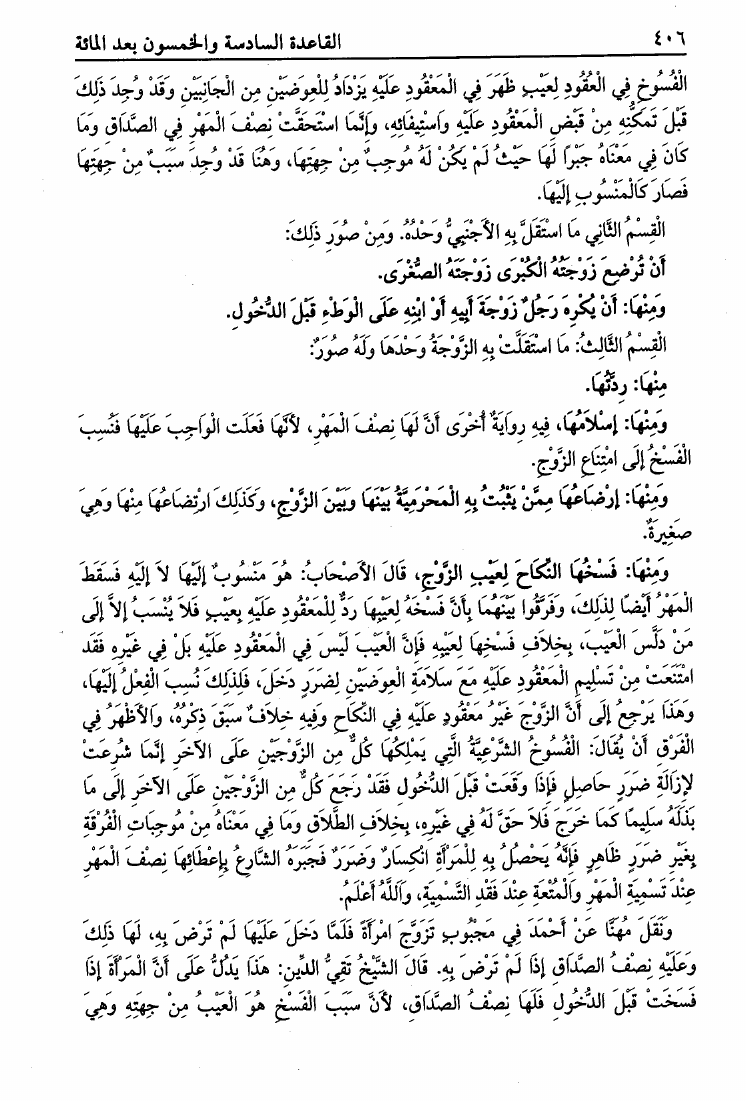 ٤٠٦
القاعدة السادسة والخمسون بعد المائة
الْفُسُوخِ فِي الْعُقُودِ لِعَيْبٍ ظَهَرَ فِي الْمَعْقُودِ عَلَيْهِ يَزْدَادُ لِلْعِوَضَيْنِ مِنِ الْجَانِبَيْنِ وَقَدْ وُجِدَ ذَلِكَ
قَبْلَ تَمَكُّنِهِ مِنْ قَبْضِ الْمَعْقُودِ عَلَيْهِ وَاسْتِيفَائِهِ، وَإِنَّمَا اسْتَحَقَّتْ نِصْفَ الْمَهْرِ فِي الصَّدَاقِ وَمَا
كَانَ فِي مَعْنَاهُ جَبْرًا لَهَا حَيْثُ لَمْ يَكُنْ لَهُ مُوجِبٌ مِنْ جِهَتِهَا، وَهُنَا قَدْ وُجِدَ سَبَبٌ مِنْ جِهَتِهَا
فَصَارَ كَالْمَنْسُوبِ إِلَيْهَا.
الْقِسْمُ الثَّانِي مَا اسْتَقَلَّ بِهِ الْأَجْنَبِيُّ وَحْدَهُ. وَمِنْ صُوَرِ ذَلِكَ:
أَنْ تُرْضِعَ زَوْجَتُهُ الْكُبْرَى زَوْجَتَهُ الصُّغْرَى.
وَمِنْهَا: أَنْ يُكْرِهَ رَجُلٌ زَوْجَةَ أَبِيهِ أَوْ ابْنِهِ عَلَى الْوَطْءِ قَبْلَ الدُّخُولِ.
الْقِسْمُ الثَّالِثُ: مَا اسْتَقَلَّتْ بِهِ الزَّوْجَةُ وَحْدَهَا وَلَهُ صُوَرٌ:
مِنْهَا: رِدَّتُهَا.
وَمِنْهَا: إِسْلَامُهَا، فِيهِ رِوَايَةٌ أُخْرَى أَنَّ لَهَا نِصْفَ الْمَهْرِ، لأَنَّهَا فَعَلَتِ الْوَاجِبَ عَلَيْهَا فَنُسِبَ
الْفَسْخُ إِلَى امْتِنَاعِ الزَّوْجِ.
وَمِنْهَا: إِرْضَاعُهَا مِمَّنْ يَثْبُتُ بِهِ الْمَحْرَمِيَّةُ بَيْنَهَا وَبَيْنَ الزَّوْجِ، وَكَذَلِكَ ارْتِضَاعُهَا مِنْهَا وَهِيَ
صَغِيرَةٌ.
وَمِنْهَا: فَسْخُهَا النِّكَاحَ لِعَيْبِ الزَّوْجِ، قَالَ الأَصْحَابُ: هُوَ مَنْسُوبٌ إِلَيْهَا لاَ إِلَيْهِ فَسَقَطَ
الْمَهْرُ أَيْضًا لِذَلِكَ، وَفَرَّقُوا بَيْنَهُمَا بِأَنَّ فَسْخَهُ لِعَيْبِهَا رَدٌّ لِلْمَعْقُودِ عَلَيْهِ بِعَيْبٍ فَلاَ يُنْسَبُ إِلاَّ إِلَى
مَنْ دَلَّسَ الْعَيْبَ، بِخِلَافِ فَسْخِهَا لِعَيْبِهِ فَإِنَّ الْعَيْبَ لَيْسَ فِي الْمَعْقُودِ عَلَيْهِ بَلْ فِي غَيْرِهِ فَقَد
امْتَنَعَتْ مِنْ تَسْلِيمِ الْمَعْقُودِ عَلَيْهِ مَعَ سَلَامَةِ الْعِوَضَيْنِ لِضَرَرٍ دَخَلَ، فَلِذَلِكَ نُسِبَ الْفِعْلُ إِلَيْهَا،
وَهَذَا يَرْجِعُ إِلَى أَنَّ الزَّوْجَ غَيْرُ مَعْقُودٍ عَلَيْهِ فِي النِّكَاحِ وَفِيهِ خِلَافٌ سَبَقَ ذِكْرُهُ، وَالأَظْهَرُ فِي
الْفَرْقِ أَنْ يُقَالَ: الْفُسُوخُ الشَّرْعِيَّةُ الَّتِي يَمْلِكُهَا كُلٌّ مِنِ الزَّوْجَيْنِ عَلَى الآخَرِ إِنَّمَا شُرِعَتْ
لِإِزَالَةِ ضَرَرٍ حَاصِلٍ فَإِذَا وَقَعَتْ قَبْلَ الدُّخُولِ فَقَدْ رَجَعَ كُلٌّ مِنِ الزَّوْجَيْنِ عَلَى الآخَرِ إِلَى مَا
بَذَلَهُ سَلِيمًا كَمَا خَرَجَ فَلاَ حَقَّ لَهُ فِي غَيْرِهِ، بِخِلَافِ الطَّلَاقِ وَمَا فِي مَعْنَاهُ مِنْ مُوجِبَاتِ الْفُرْقَةِ
بِغَيْرِ ضَرَرٍ ظَاهِرٍ فَإِنَّهُ يَحْصُلُ بِهِ لِلْمَرْأَةِ انْكِسَارٌ وَضَرَرٌ فَجَبَرَهُ الشَّارِعُ بِإِعْطَائِهَا نِصْفَ الْمَهْرِ
عِنْدَ تَسْمِيَةِ الْمَهْرِ وَالْمُتْعَةِ عِنْدَ فَقْدِ التَّسْمِيَةِ، وَاللَّهُ أَعْلَمُ.
وَنَقَلَ مُهَنَّا عَنْ أَحْمَدَ فِي مَجْبُوبٍ تَزَوَّجَ امْرَأَةً فَلَمَّا دَخَلَ عَلَيْهَا لَمْ تَرْضَ بِهِ، لَهَا ذَلِكَ
وَعَلَيْهِ نِصْفُ الصَّدَاقِ إِذَا لَمْ تَرْضَ بِهِ. قَالَ الشَّيْخُ تَقِيُّ الدِّينِ: هَذَا يَدُلُّ عَلَى أَنَّ الْمَرْأَةَ إِذَا
فَسَخَتْ قَبْلَ الدُّخُولِ فَلَهَا نِصْفُ الصَّدَاقِ، لأَنَّ سَبَبَ الْفَسْخِ هُوَ الْعَيْبُ مِنْ جِهَتِهِ وَهِيَ